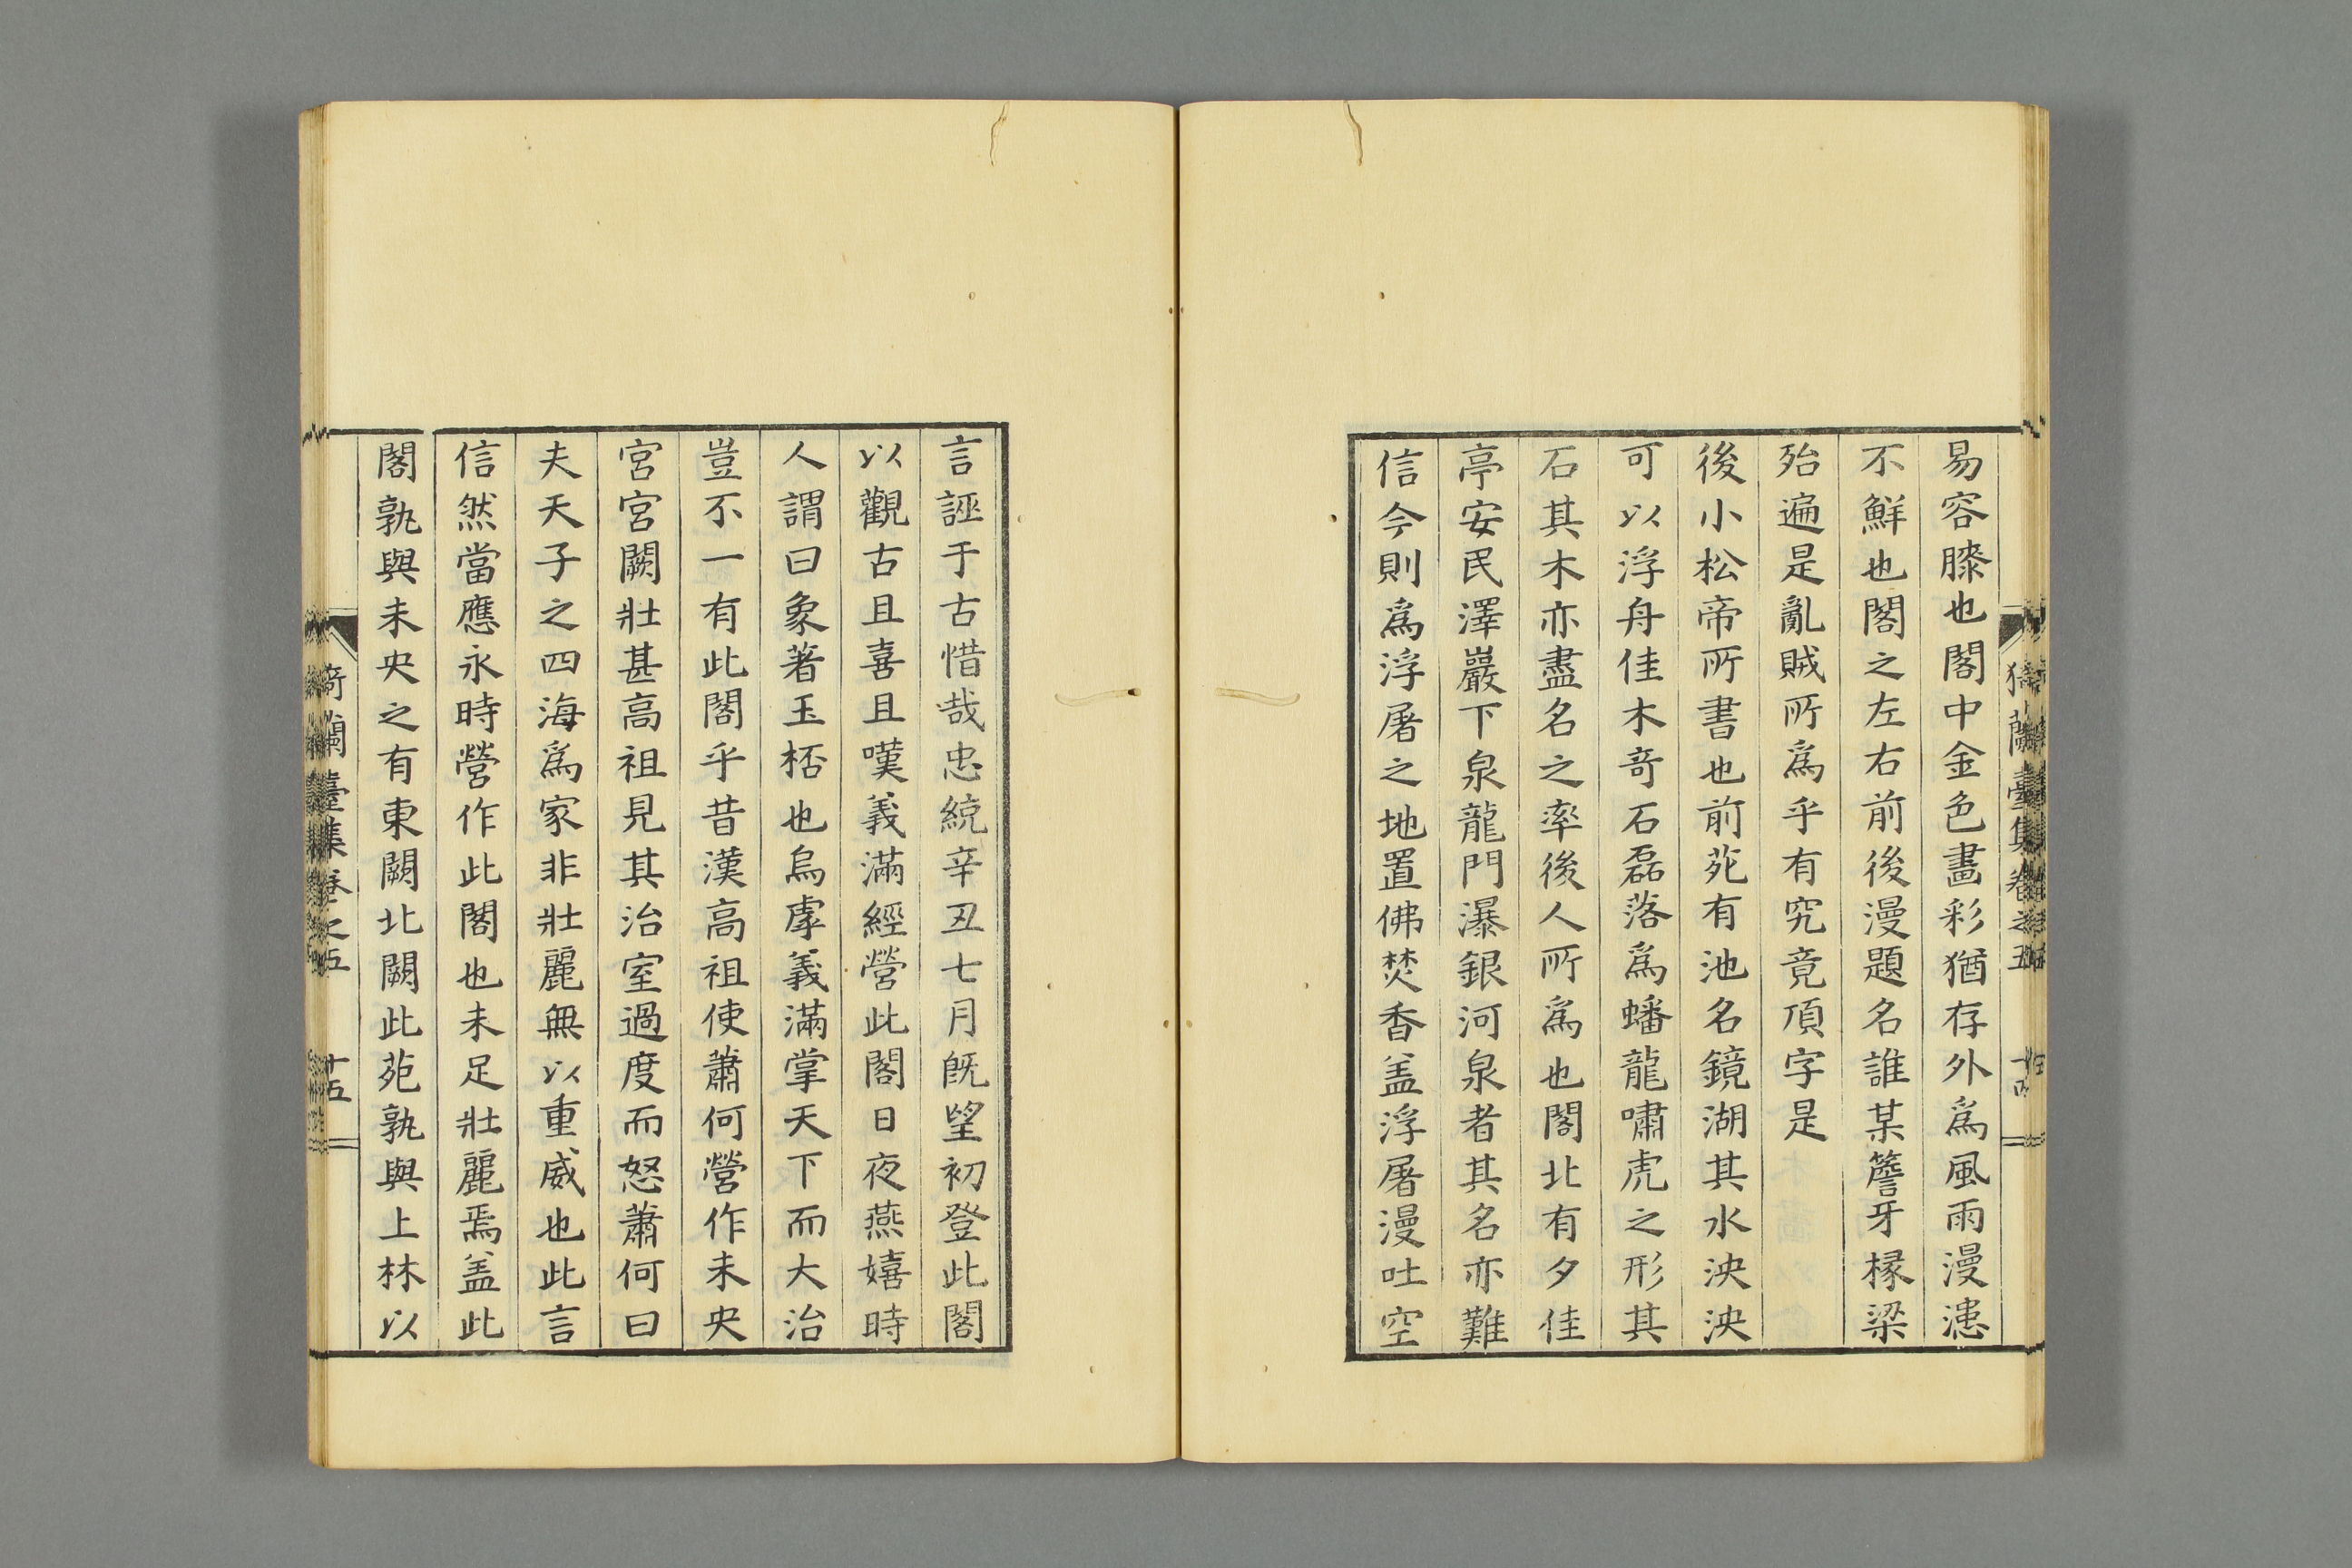 猗蘭臺集卷之五 十四
易容膝也閣中金色畫彩猶存外爲風雨漫漶
不鮮也閣之左右前後漫題名誰某簷牙椽梁
殆遍是亂賊所爲乎有究竟頂字是
後小松帝所書也前苑有池名鏡湖其水泱泱
可以浮舟佳木奇石磊落爲蟠龍嘯虎之形其
石其木亦盡名之率後人所爲也閣北有夕佳
亭安民澤巖下泉龍門瀑銀河泉者其名亦難
信今則爲浮屠之地置佛焚香盖浮屠漫吐空
言誣于古惜哉忠統辛丑七月既望初登此閣
以觀古且喜且嘆義滿經營此閣日夜燕嬉時
人謂曰象著玉桮也烏虖義滿掌天下而大治
豈不一有此閣乎昔漢高祖使蕭何營作未央
宮宮闕壯甚高祖見其治室過度而怒蕭何曰
夫天子之四海爲家非壯麗無以重威也此言
信然當應永時營作此閣也未足壯麗焉盖此
閣孰與未央之有東闕北闕此苑孰與上林以
猗蘭臺集卷之五 十五